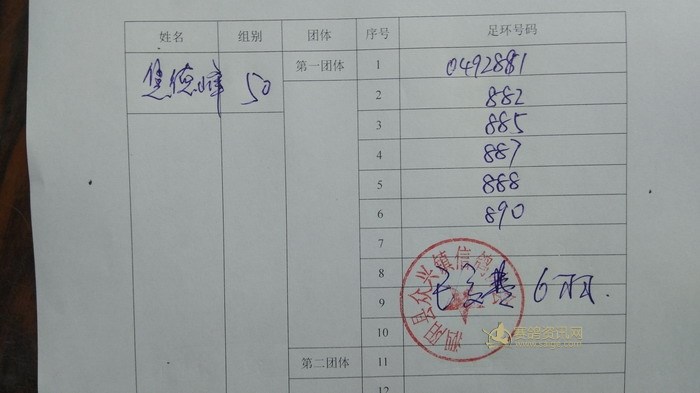 姓名 组别 团体 序号 足环号码
50 第一团体 1 0492881
2 882
3 885
4 887
5 888
6 890
7
8
9 6羽.
10
第二团体 11
12
泗阳县众兴镇信鸽
赛鸽资讯网